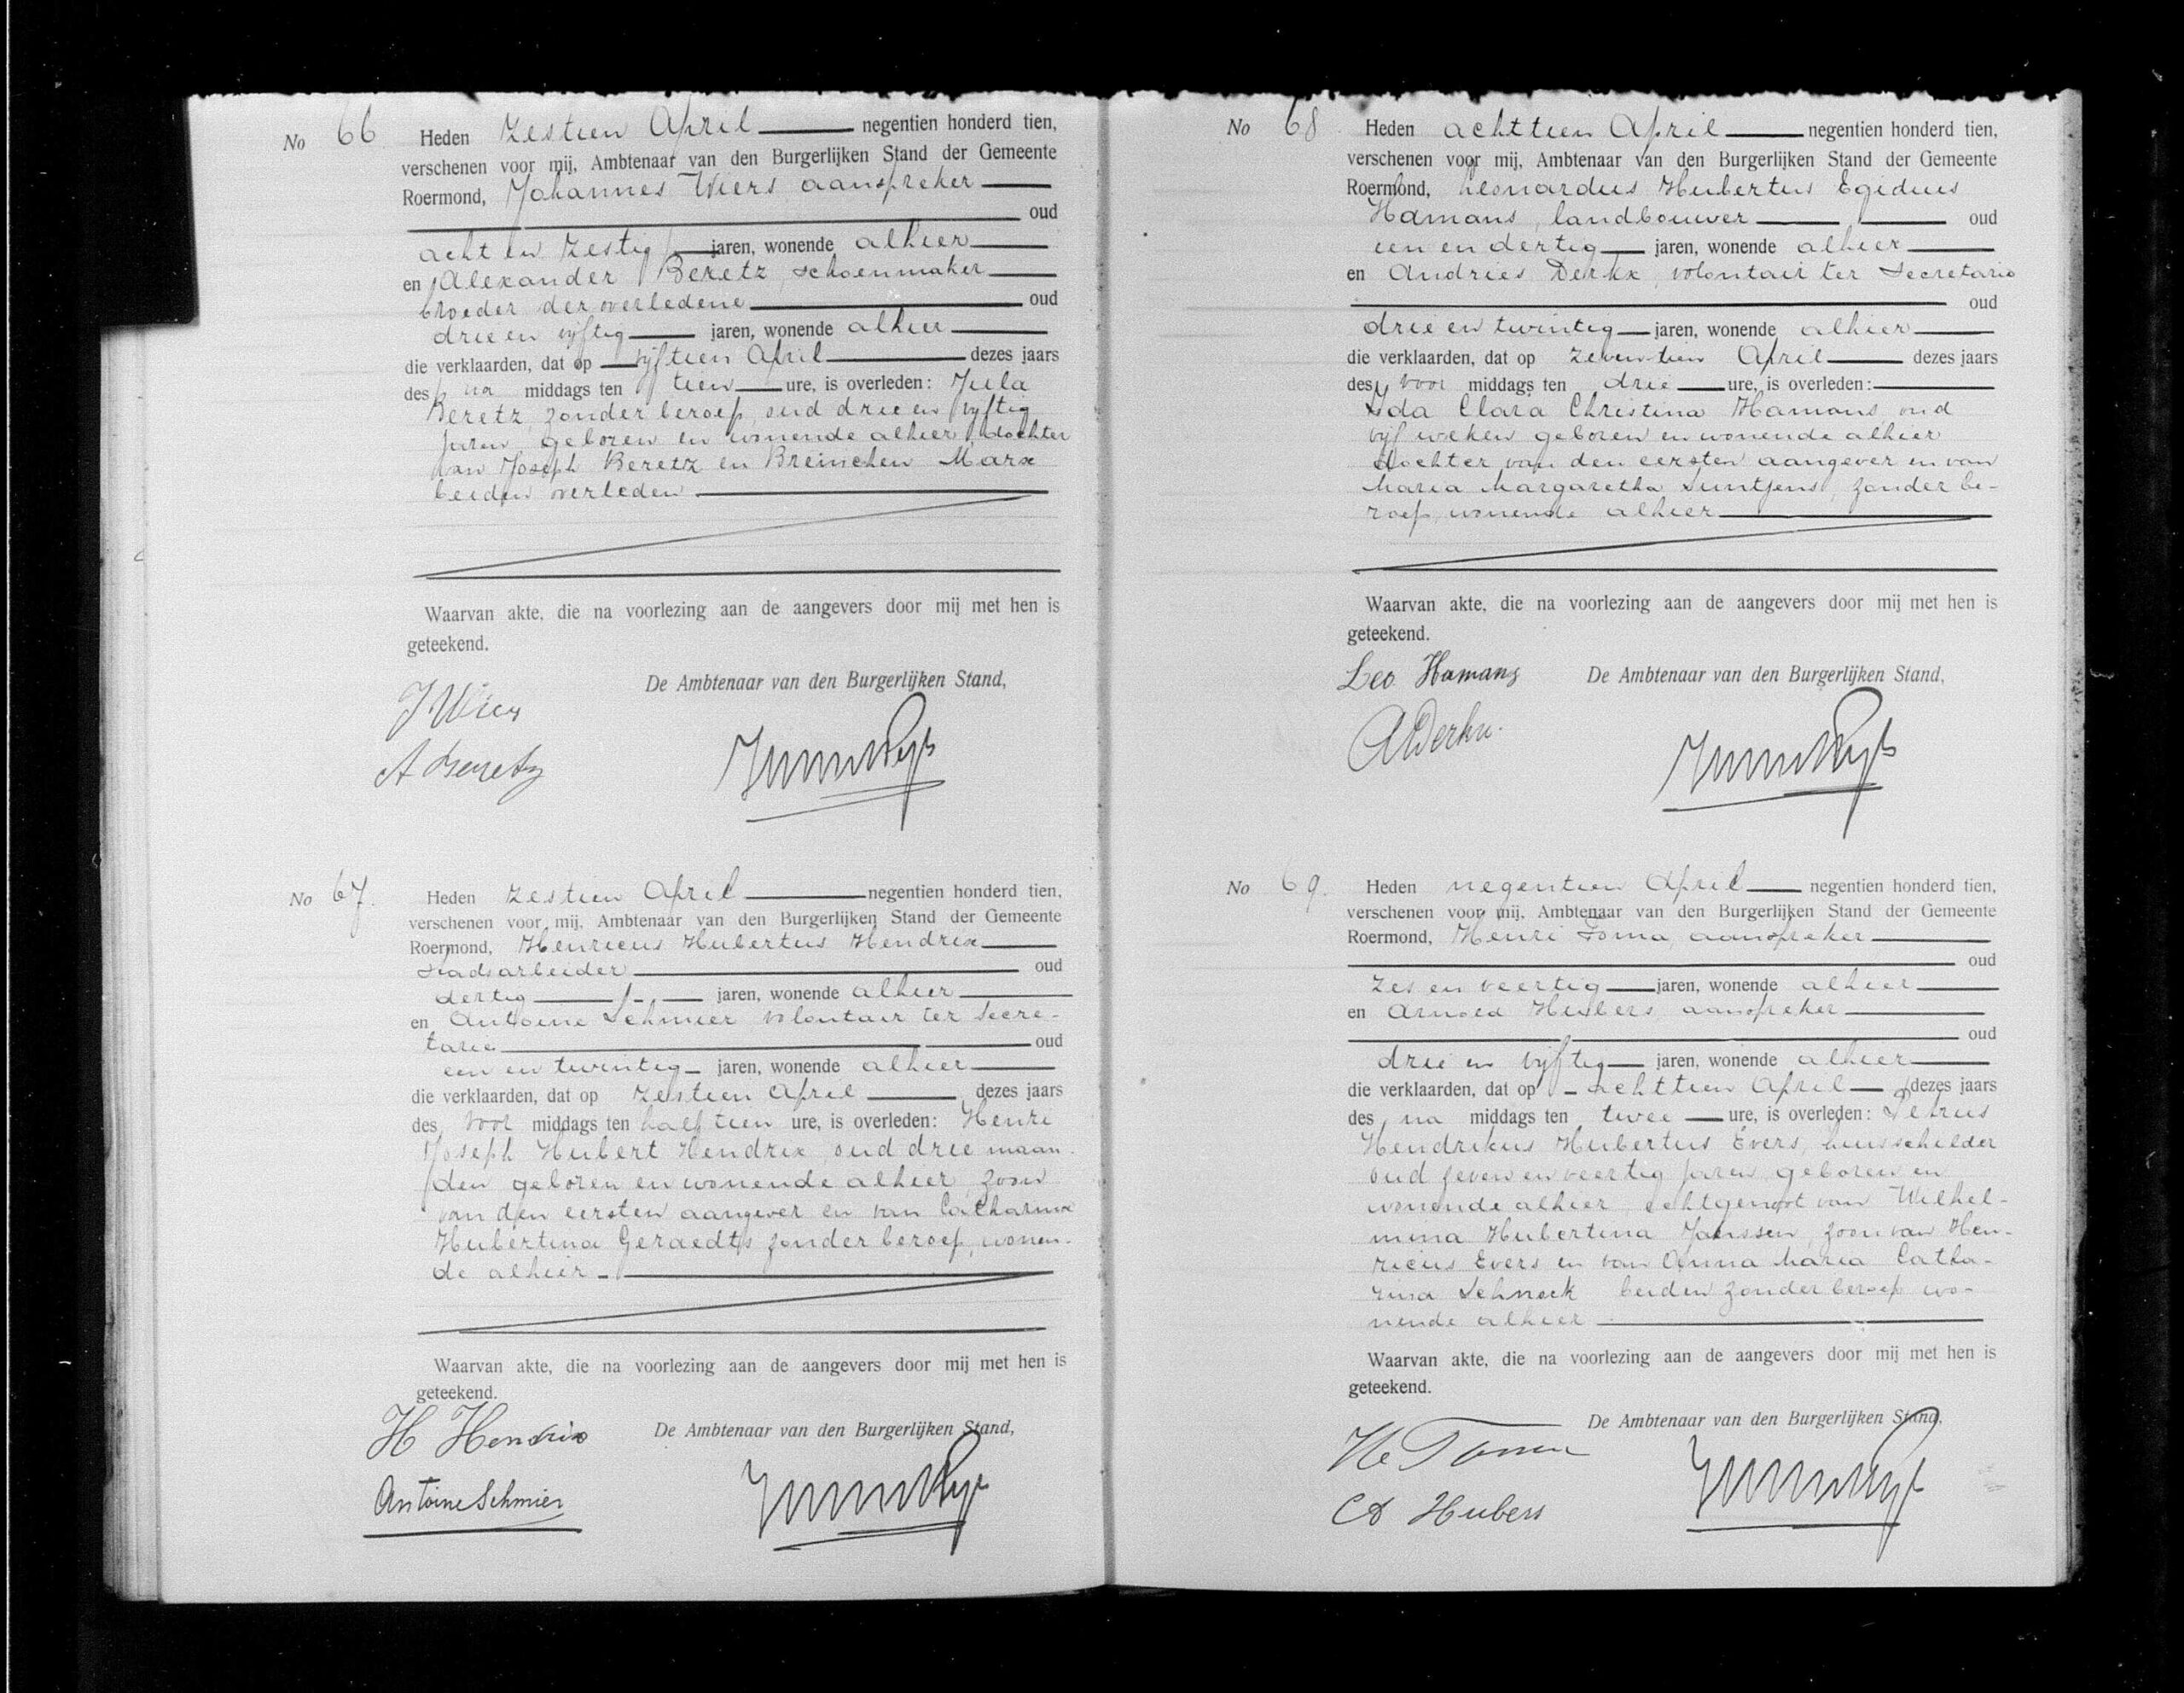 No 66 Heden zestien April negentien honderd tien,
verschenen voor mij, Ambtenaar van den Burgerlijken Stand der Gemeente
Roermond, Johannes Wiers aanspreker
oud
acht en zestig jaren, wonende alhier
en Alexander Beretz, schoenmaker
broeder der overledene oud
drie en vijftig jaren, wonende alhier
die verklaarden, dat op vijftien April dezes jaars
des na middags ten tien ure, is overleden: Jula
Beretz, zonder beroep, oud drie en vijftig
jaren geboren en wonende alhier, dochter
van Joseph Beretz en Breinchen Marx
beiden overleden
Waarvan akte, die na voorlezing aan de aangevers door mij met hen is
geteekend.
De Ambtenaar van den Burgerlijken Stand,
J Wiers
A Beretz
No 67. Heden zestien April negentien honderd tien,
verschenen voor mij, Ambtenaar van den Burgerlijken Stand der Gemeente
Roermond, Henricus Hubertus Hendrix
stadsarbeider oud
dertig jaren, wonende alhier
en Antoine Schmier volontair ter Secre-
tarie oud
een en twintig jaren, wonende alhier
die verklaarden, dat op zestien April dezes jaars
des voor middags ten half tien ure, is overleden: Henri
Joseph Hubert Hendrix, oud drie maan-
den geboren en wonende alhier, zoon
van den eersten aangever en van Catharina
Hubertina Geraedts zonder beroep, wonen-
de alhier
Waarvan akte, die na voorlezing aan de aangevers door mij met hen is
geteekend.
De Ambtenaar van den Burgerlijken Stand,
H Hendrix
Antoine Schmier
No 68. Heden achttien April negentien honderd tien,
verschenen voor mij, Ambtenaar van den Burgerlijken Stand der Gemeente
Roermond, Leonardus Hubertus Egidius
Hamans, landbouwer oud
een en dertig jaren, wonende alhier
en Andries Derkx, volontair ter Secretarie
oud
drie en twintig jaren, wonende alhier
die verklaarden, dat op zeventien April dezes jaars
des voor middags ten drie ure, is overleden:
Ida Clara Christina Hamans, oud
vijf weken geboren en wonende alhier
dochter van den eersten aangever en van
Maria Margaretha Suntjens, zonder be-
roep, wonende alhier
Waarvan akte, die na voorlezing aan de aangevers door mij met hen is
geteekend.
De Ambtenaar van den Burgerlijken Stand,
Leo Hamans
A Derkx.
No 69. Heden negentien April negentien honderd tien,
verschenen voor mij, Ambtenaar van den Burgerlijken Stand der Gemeente
Roermond, Henri Toma, aanspreker
oud
zes en veertig jaren, wonende alhier
en Arnold Hubers aanspreker
oud
drie en vijftig jaren, wonende alhier
die verklaarden, dat op achttien April dezes jaars
des na middags ten twee ure, is overleden: Petrus
Hendrikus Hubertus Evers, huisschilder
oud zeven en veertig jaren, geboren en
wonende alhier, echtgenoot van Wilhel-
mina Hubertina Janssen, zoon van Hen-
ricus Evers en van Anna Maria Catha-
rina Schnock beiden zonder beroep wo-
nende alhier
Waarvan akte, die na voorlezing aan de aangevers door mij met hen is
geteekend.
De Ambtenaar van den Burgerlijken Stand,
He Toma
A Hubers